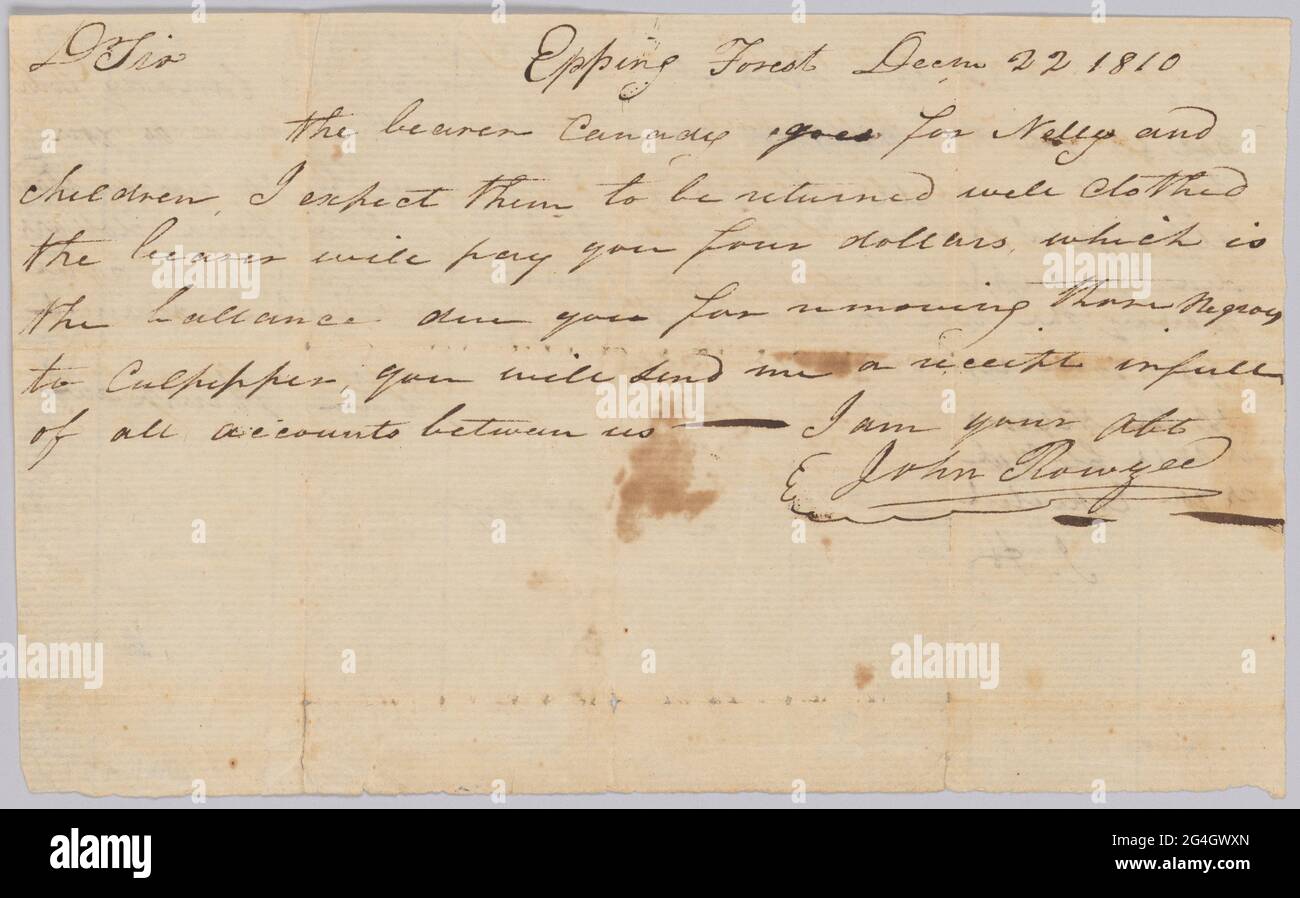 Dr Sir Epping Forest Decm 22 1810
the bearer Canady goes for Nelly and
children, I expect them to be returned well clothed
the bearer will pay you four dollars, which is
the ballance due you for removing those Negroes
to Culpepper, you will send me a receipt in full
of all accounts between us — I am your Obt
John Rowzee
alamy
Image ID: 2G4GWXN
www.alamy.com